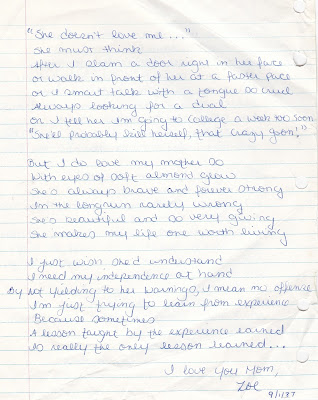 "She doesn't love me..."
She must think
After I slam a door right in her face
or walk in front of her at a faster pace
or I smart talk with a tongue so cruel
Always looking for a dual
Or I tell her I'm going to College a week too soon
"She'll probably kill herself, that crazy goon!"
But I do love my mother so
With eyes of soft almond glow
She's always brave and forever strong
In the longrun rarely wrong
She's beautiful and so very giving
She makes my life one worth living
I just wish she'd understand
I need my independence at hand
By not yielding to her warnings, I mean no offense
I'm just trying to learn from experience
Because sometimes
A lesson taught by the experience earned
Is really the only lesson learned...
I love you Mom,
Zoe